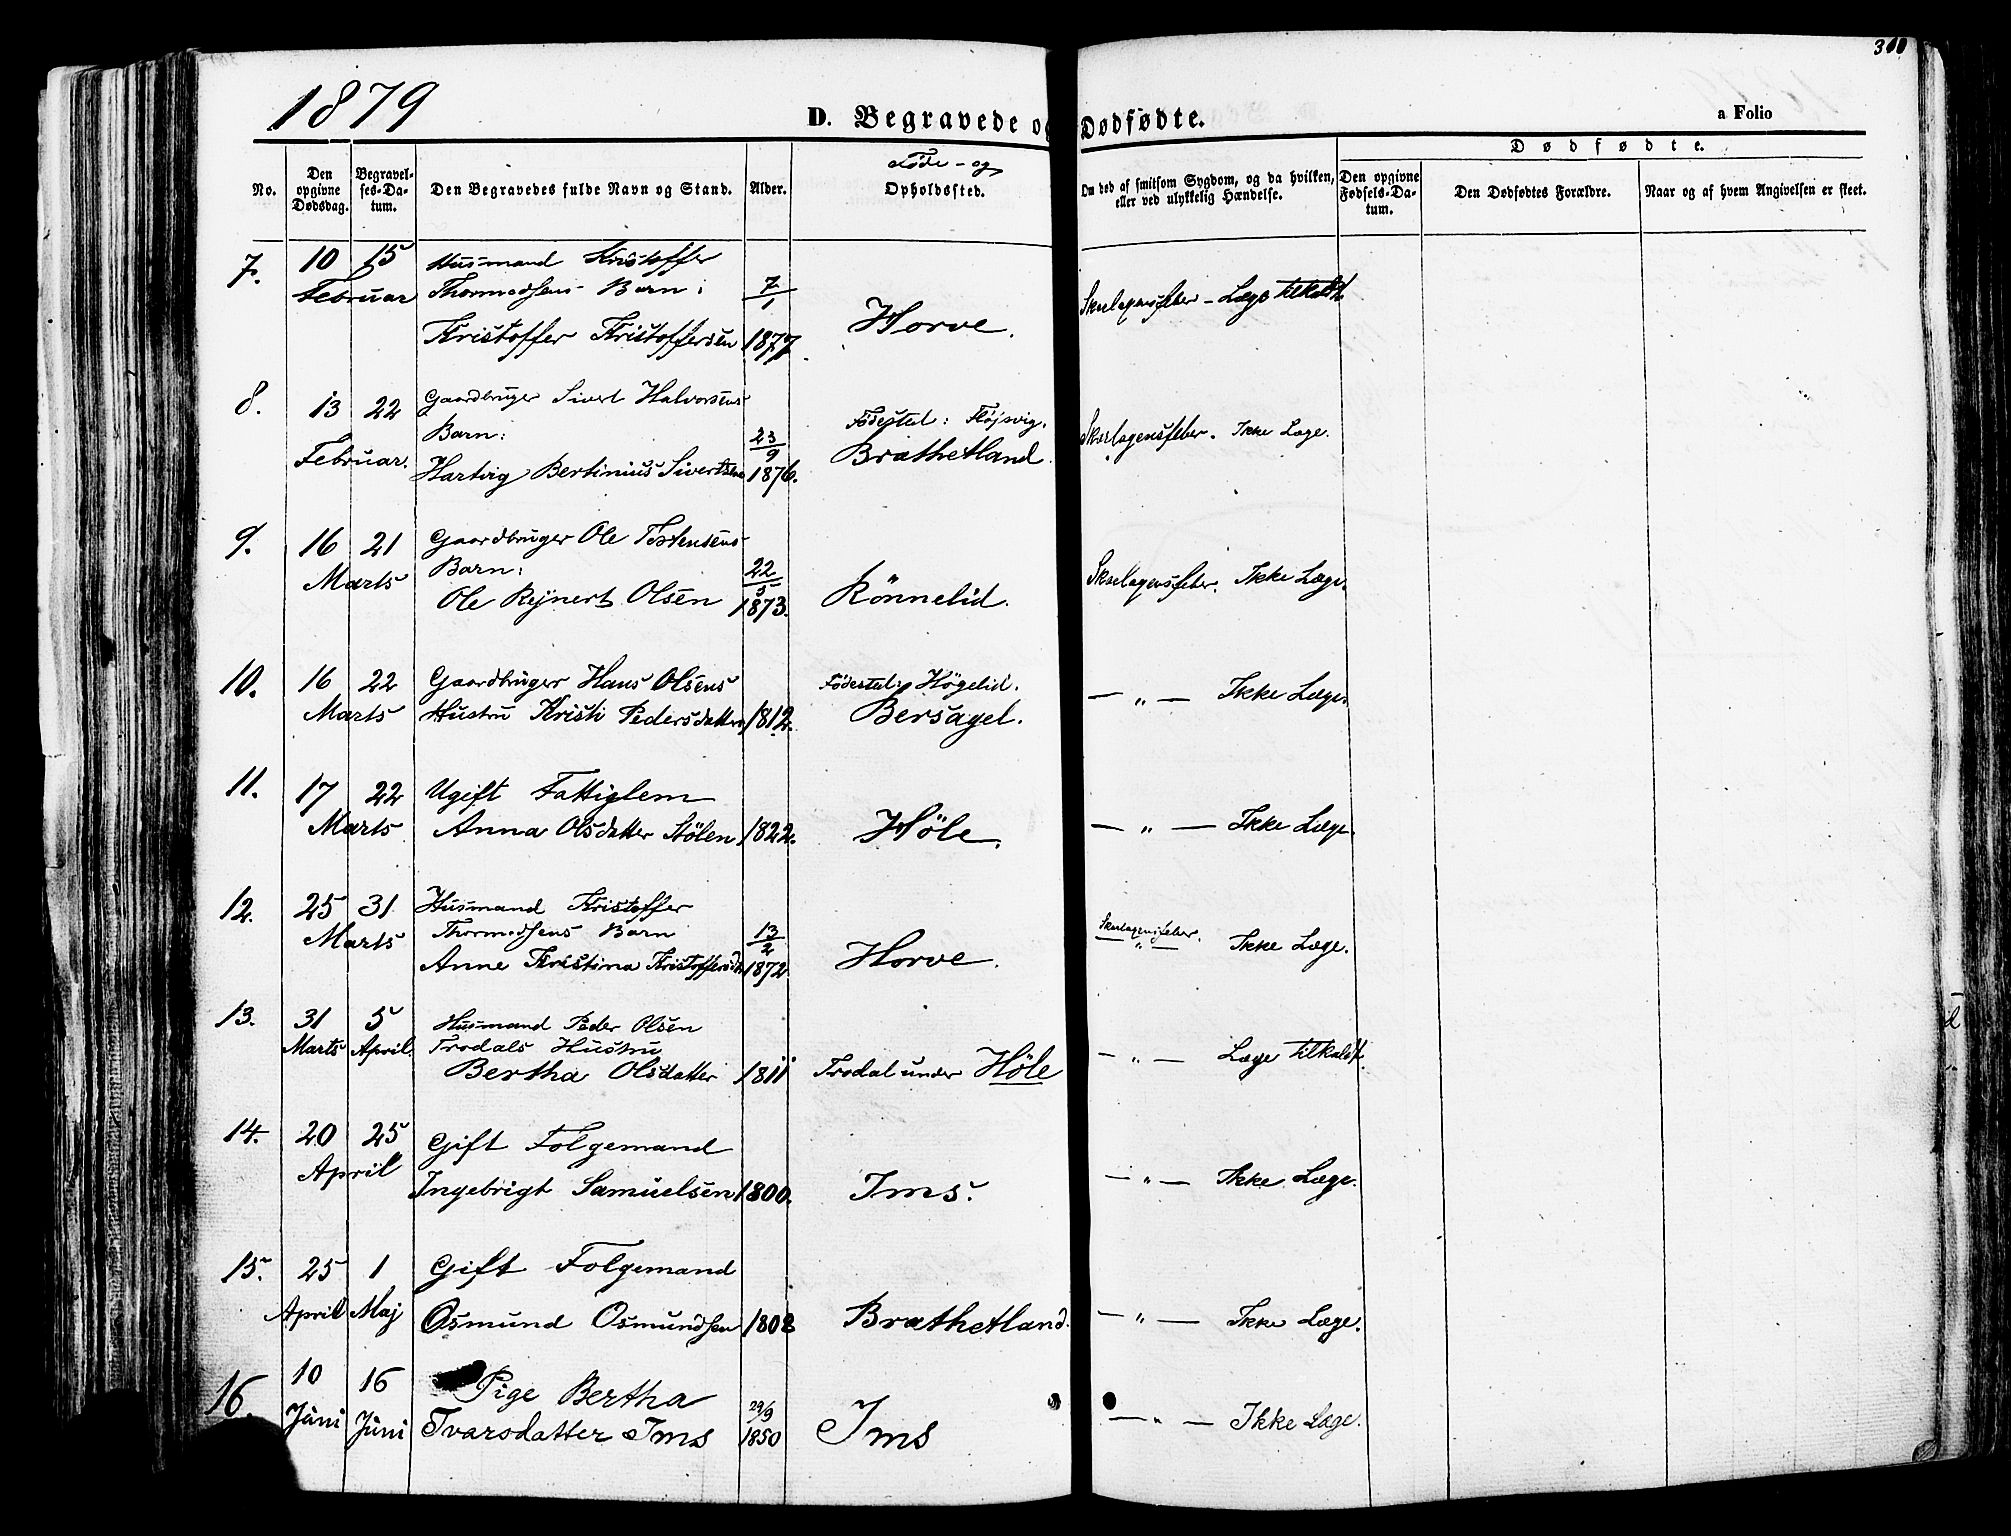 1879
310
D. Begravede og Dødfødte.
a Folio
Føde- og
Dødfødte.
No.
Den opgivne Dødsdag.
Begravelses-Datum.
Den Begravedes fulde Navn og Stand.
Alder.
Opholdssted.
Om død af smitsom Sygdom, og da hvilken, eller ved ulykkelig Hændelse.
Den opgivne Fødsels-Datum.
Den Dødfødtes Forældre.
Naar og af hvem Angivelsen er skeet.
7. 10 15 Husmand Kristoffer
Februar Thormodsens Barn: 7/1 Skarlagensfeber - Læge tilkaldt.
Kristoffer Kristoffersen 1877. Horve.
8. 13 22 Gaardbruger Sivert Halvorsens
Barn: 23/9 Fødested: Fløjsvig. Skarlagensfeber. Ikke Læge.
Februar. Hartvig Bertinius Sivertsen 1876. Brathetland
9. 16 21 Gaardbruger Ole Tostensens
Marts Barn: 22/5 Skarlagensfeber. Ikke Læge.
Ole Rejnert Olsen 1873. Rönnelid.
10. 16 22 Gaardbruger Hans Olsens Fødested: Høgelid. — „ — Ikke Læge.
Marts Hustru Kristi Pedersdatter 1812. Bersagel.
11. 17 22 Ugift Fattiglem
Marts Anna Olsdatter Stölen 1822. Höle. — „ — Ikke Læge.
12. 25 31 Husmand Kristoffer
Marts Thormodsens Barn 13/2 Skarlagensfeber.
Anne Kristina Kristoffersd. 1872. Horve. — „ — Ikke Læge.
13. 31 5 Husmand Peder Olsen
Marts April. Trodals Hustru — „ — Læge tilkaldt.
Bertha Olsdatter 1811 Trodal under Höle
14. 20 25 Gift Folgemand
April Ingebrigt Samuelsen 1800. Ims. — „ — Ikke Læge.
15. 25 1 Gift Folgemand
April Maj Osmund Osmundsen 1808 Brathetland. — „ — Ikke Læge.
16. 10 16 Pige Bertha 29/9
Juni Juni Ivarsdatter Ims 1850 Ims — „ — Ikke Læge.